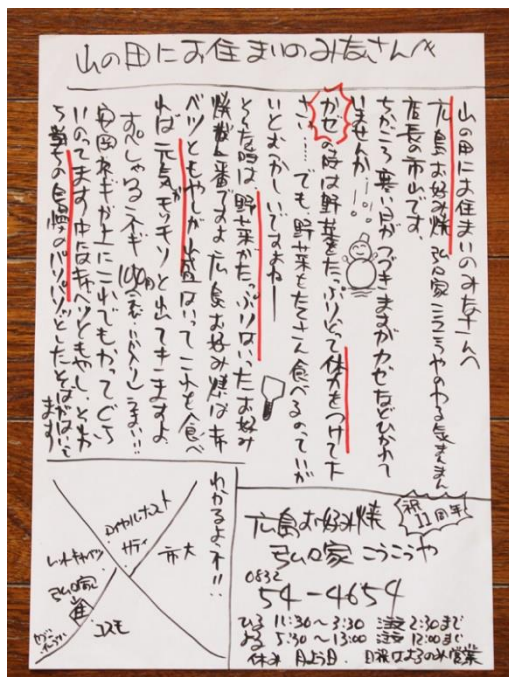 山の田にお住まいのみなさんへ
山の田にお住まいのみなさんへ
広島お好み焼 弘家こうこうやのやる気まんまん
店長の市山です。
ちかごろ寒い日がつづきますがカゼなどひかれて
いませんか
カゼの時は野菜をたっぷりとって体力をつけて下
さい…でも、野菜をたくさん食べるのっていが
いとむずかしいですよねー
そんな時は野菜がたっぷりはいったお好み
焼が一番ですよ 広島お好み焼はキャ
ベツともやしが山盛はいって これを食べ
れば元気がモリモリと出てきますよ
すぺしゃるネギ
安岡ネギが上にこれでもかってぐら
いのてます 中はキャベツともやし、
ち自慢のパリパリッとしたそばがはいって
ます
わかるよネ!!
ロイヤルホスト
サティ
市大
レッドキャベツ
コスモ
祝11周年
広島お好み焼
こうこうや
0832
54-4654
ひる 11:30～3:30 注文 2:30まで
よる 5:30～13:00 注文 12:00まで
休み 月よう日 日祝はよるのみ営業